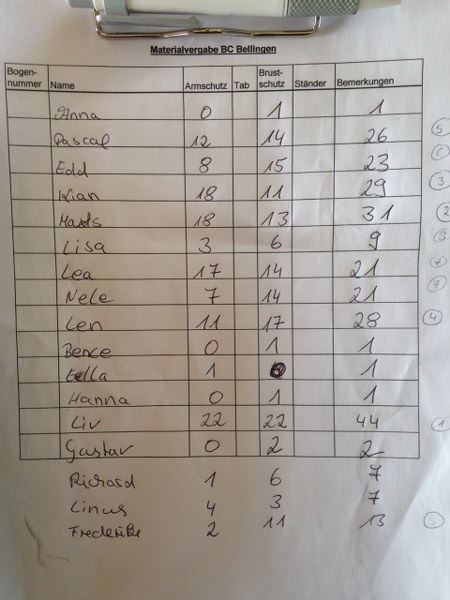 Materialvergabe BC Bellingen
Bogen-nummer Name Armschutz Tab Brust-schutz Ständer Bemerkungen
Anna 0 1 1
Pascal 12 14 26 5
Edd 8 15 23 6
Kian 18 11 29 3
Mats 18 13 31 2
Lisa 3 6 9
Lea 17 14 21 7
Nele 7 14 21 7
Len 11 17 28 4
Bence 0 1 1
Ella 1 1
Hanna 0 1 1
Liv 22 22 44 1
Gustav 0 2 2
Richard 1 6 7
Linus 4 3 7
Frederike 2 11 13